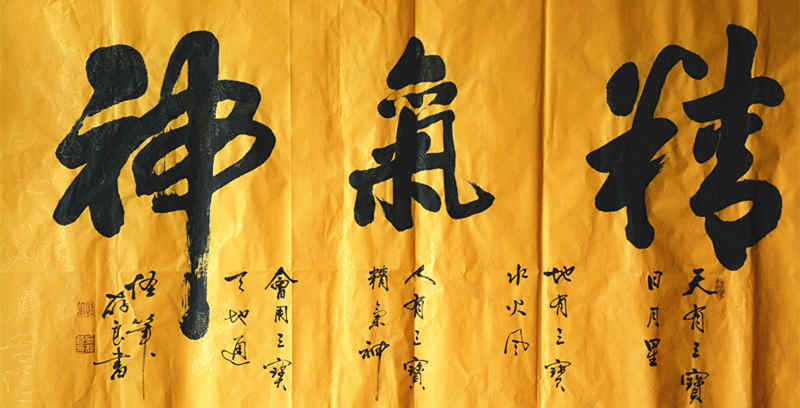 精氣神
天有三寶
日月星
地有三寶
水火风
人有三寶
精氣神
會用三寶
天地通
悟筆
存良書